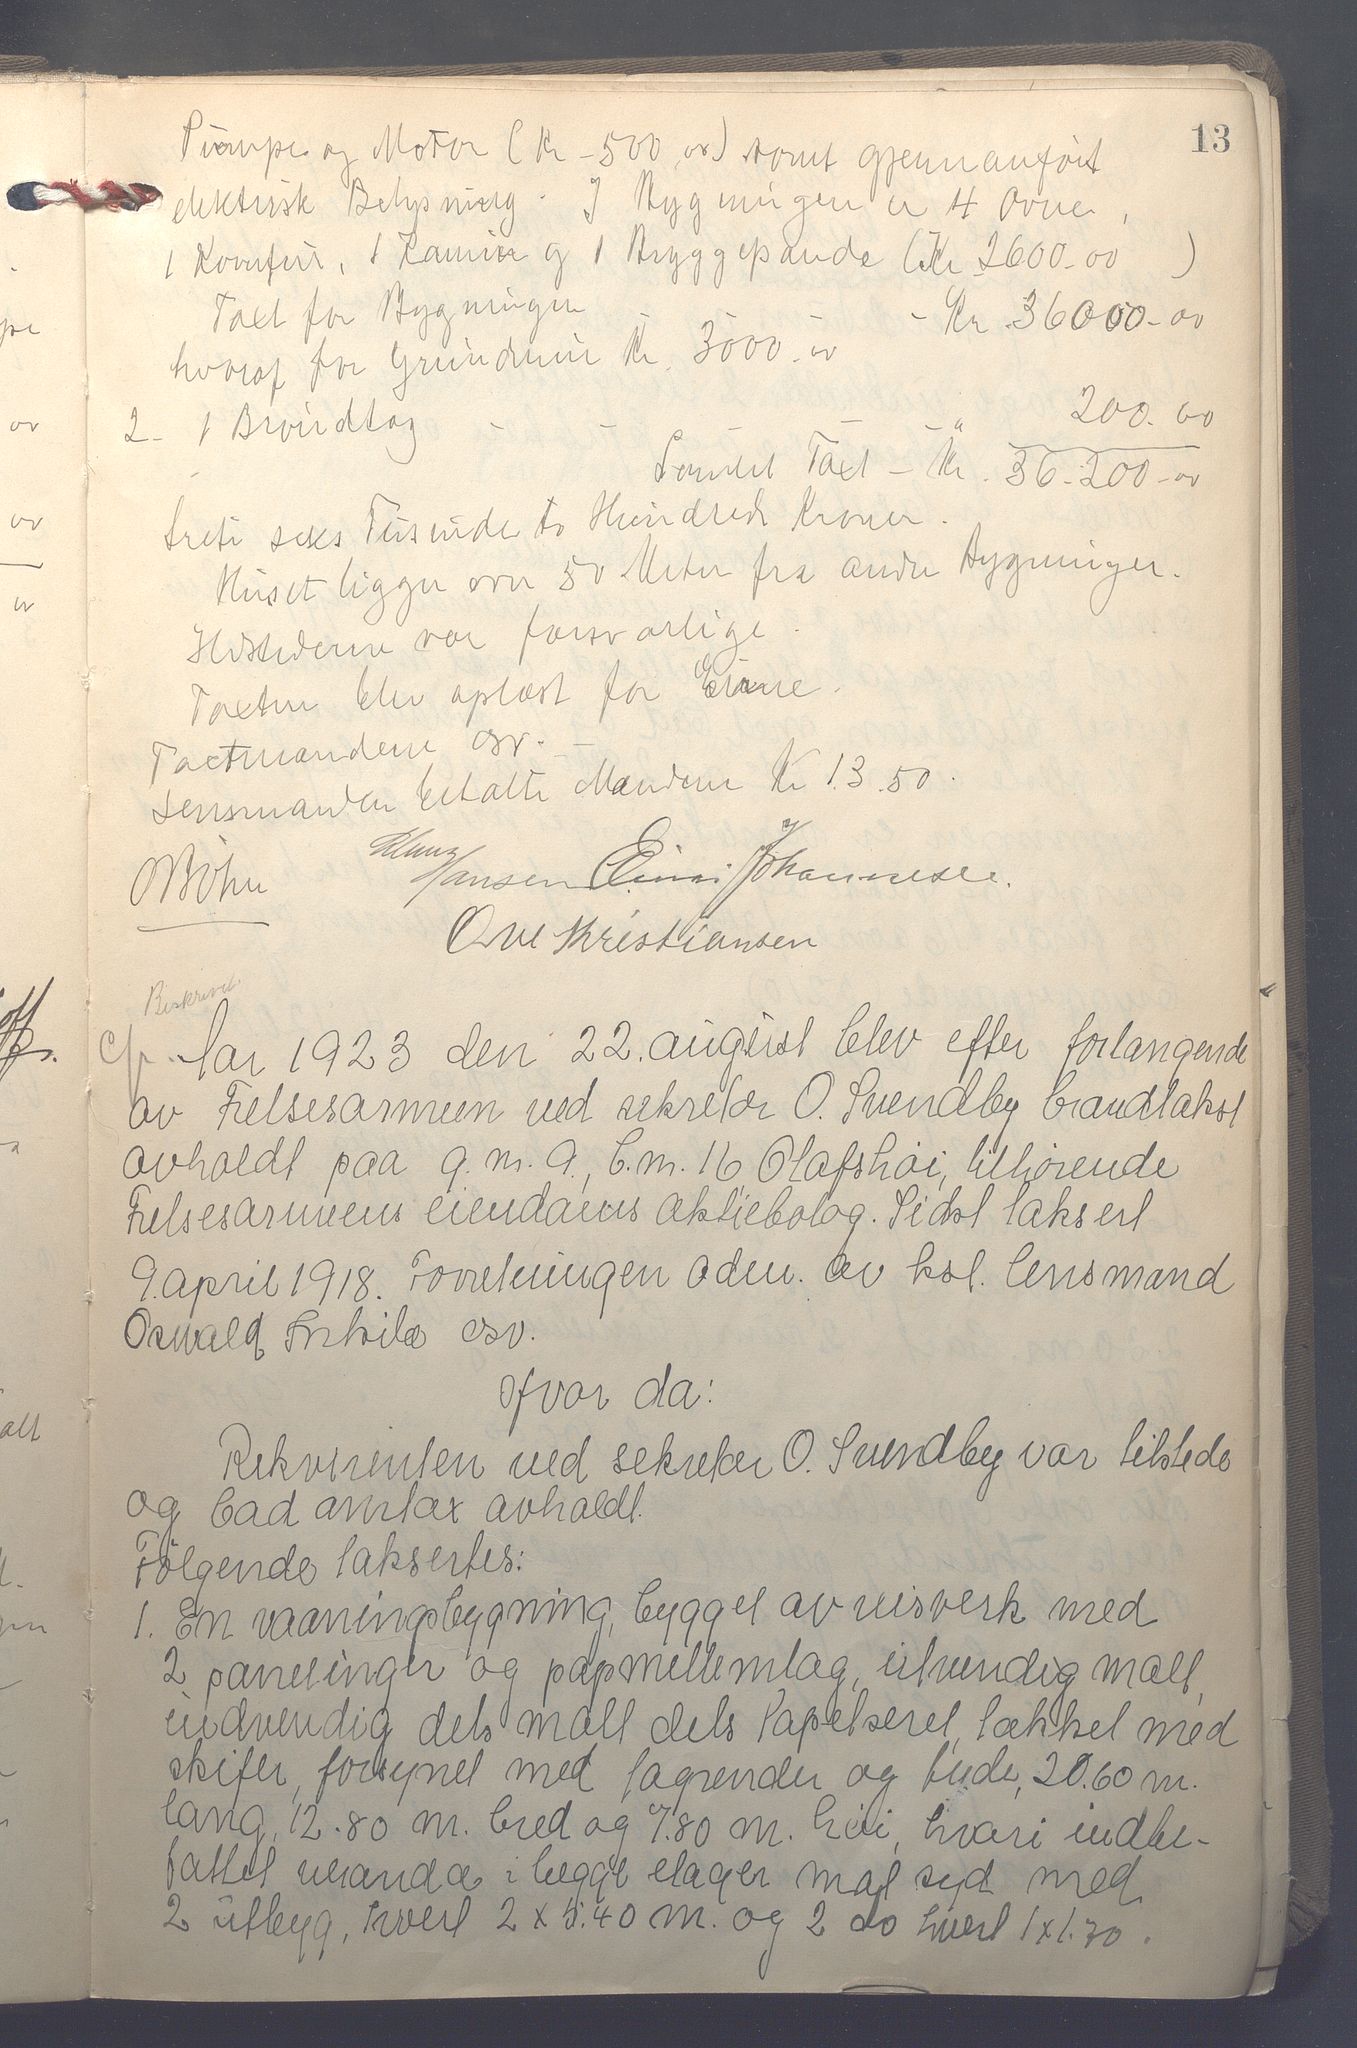 13
Pumpe og Motor (Kr - 500,00) samt gjennemført
elektrisk Belysning. I Bygningen er 4 Ovne,
1 Komfur, 1 Kamin og 1 Bryggepande (Kr 2600-00 )
Taxt for Bygningen - Kr. 36000-00
hvoraf for Grundmur Kr. 3000-00
2- 1 Brøndtag - - - " 200.00
Samlet Taxt - Kr. 36-200-00
treti seks Tusinde to Hundrede Kroner.
Huset ligger over 50 Meter fra andre Bygninger.
Ildstederne var forsvarlige.
Taxten blev oplæst for Eierne.
Taxtmændene osv. -
Lensmanden betalte Mændene Kr 13.50.
OBøhn Hansen Einar Johannesen.
Ove Kristiansen
Beskrevet.
Aar 1923 den 22. august blev efter forlangende
av Frelsesarmeen ved sekretær O. Svendby brandtakst
avholdt paa g.nr. 9, b.nr. 16 Olafshøi, tilhørende
Frelsesarmeens eiendoms aktiebolag. Sidst taksert
9. april 1918. Forretningen adm. av kst. lensmand
Oswald osv.
Hvor da:
Rekvirenten ved sekretær O. Svendby var tilstede
og bad omtax avholdt.
Følgende taksertes:
1. En vaaningsbygning, bygget av reisverk med
2 panelinger og papmellemlag, utvendig malt,
indvendig dels malt dels tapetseret, tækket med
skifer, forsynet med tagrender og 20.60 m.
lang, 12.80 m. bred og 7.80 m. høi, hvori indbe-
fattet veranda i begge etager mot syd med
2 utbygg, hvert 2 x 5.40 m. og 2 do hvert 1 x 1.70.